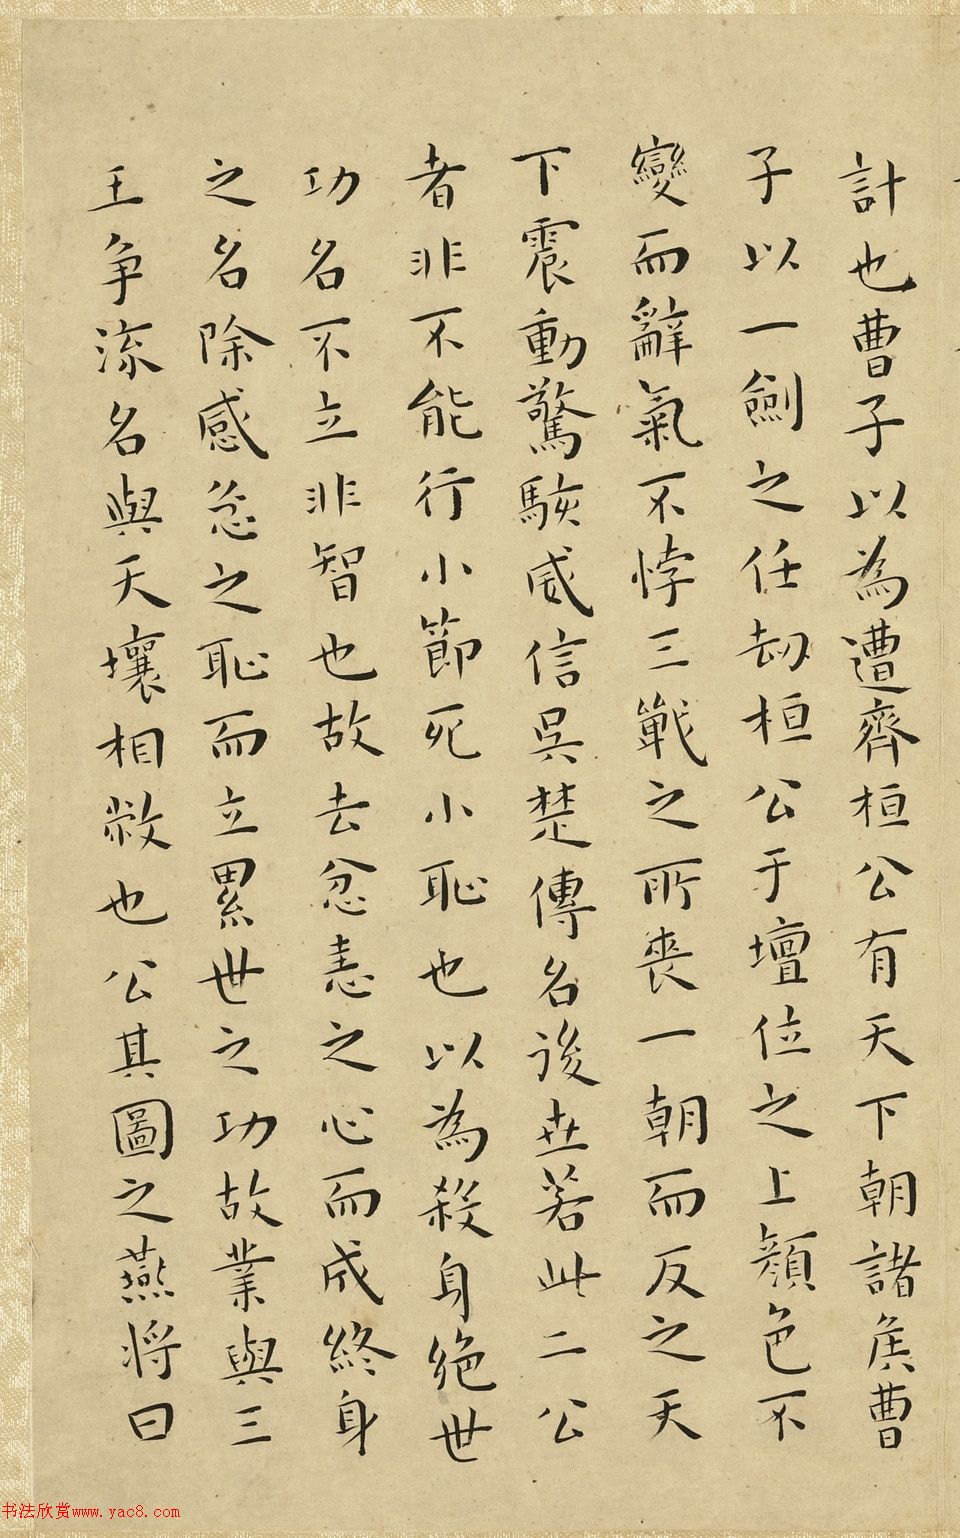 計也曹子以為遭齊桓公有天下朝諸侯曹
子以一劍之任劫桓公于壇位之上顏色不
變而辭氣不悖三戰之所喪一朝而反之天
下震動驚駭威信吳楚傳名後世若此二公
者非不能行小節死小恥也以為殺身絕世
功名不立非智也故去忿恚之心而成終身
之名除感忿之恥而立累世之功故業與三
王爭流名與天壤相敝也公其圖之燕將曰
书法欣赏www.yac8.com